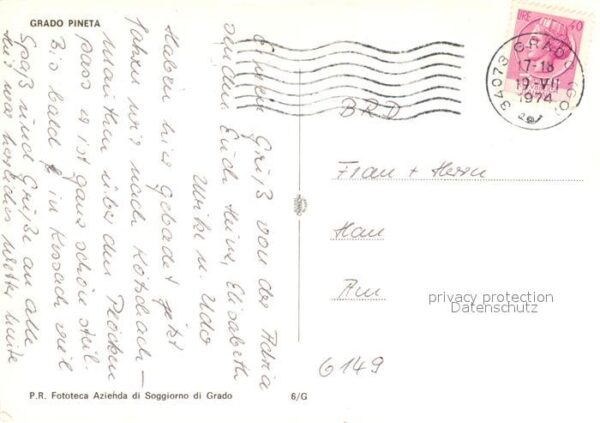 GRADO PINETA
Einen Gruß von der Adria
senden Euch Heinz, Elisabeth
Ulrike u. Udo
Haben hier gebadet jetzt
fahren wir nach Kötschach-
Mauthen über den Plöcken
pass er ist ganz schön steil.
Bis bald in Kossach viel
Spaß und Grüße an alle
Hier war herrliches Wetter heute
P.R. Fototeca Azienda di Soggiorno di Grado
6/G
LIRE 40
34073 GRADO (GO)
17-18
19-VII
1974
BRD
Frau + Herrn
privacy protection
Datenschutz
6149